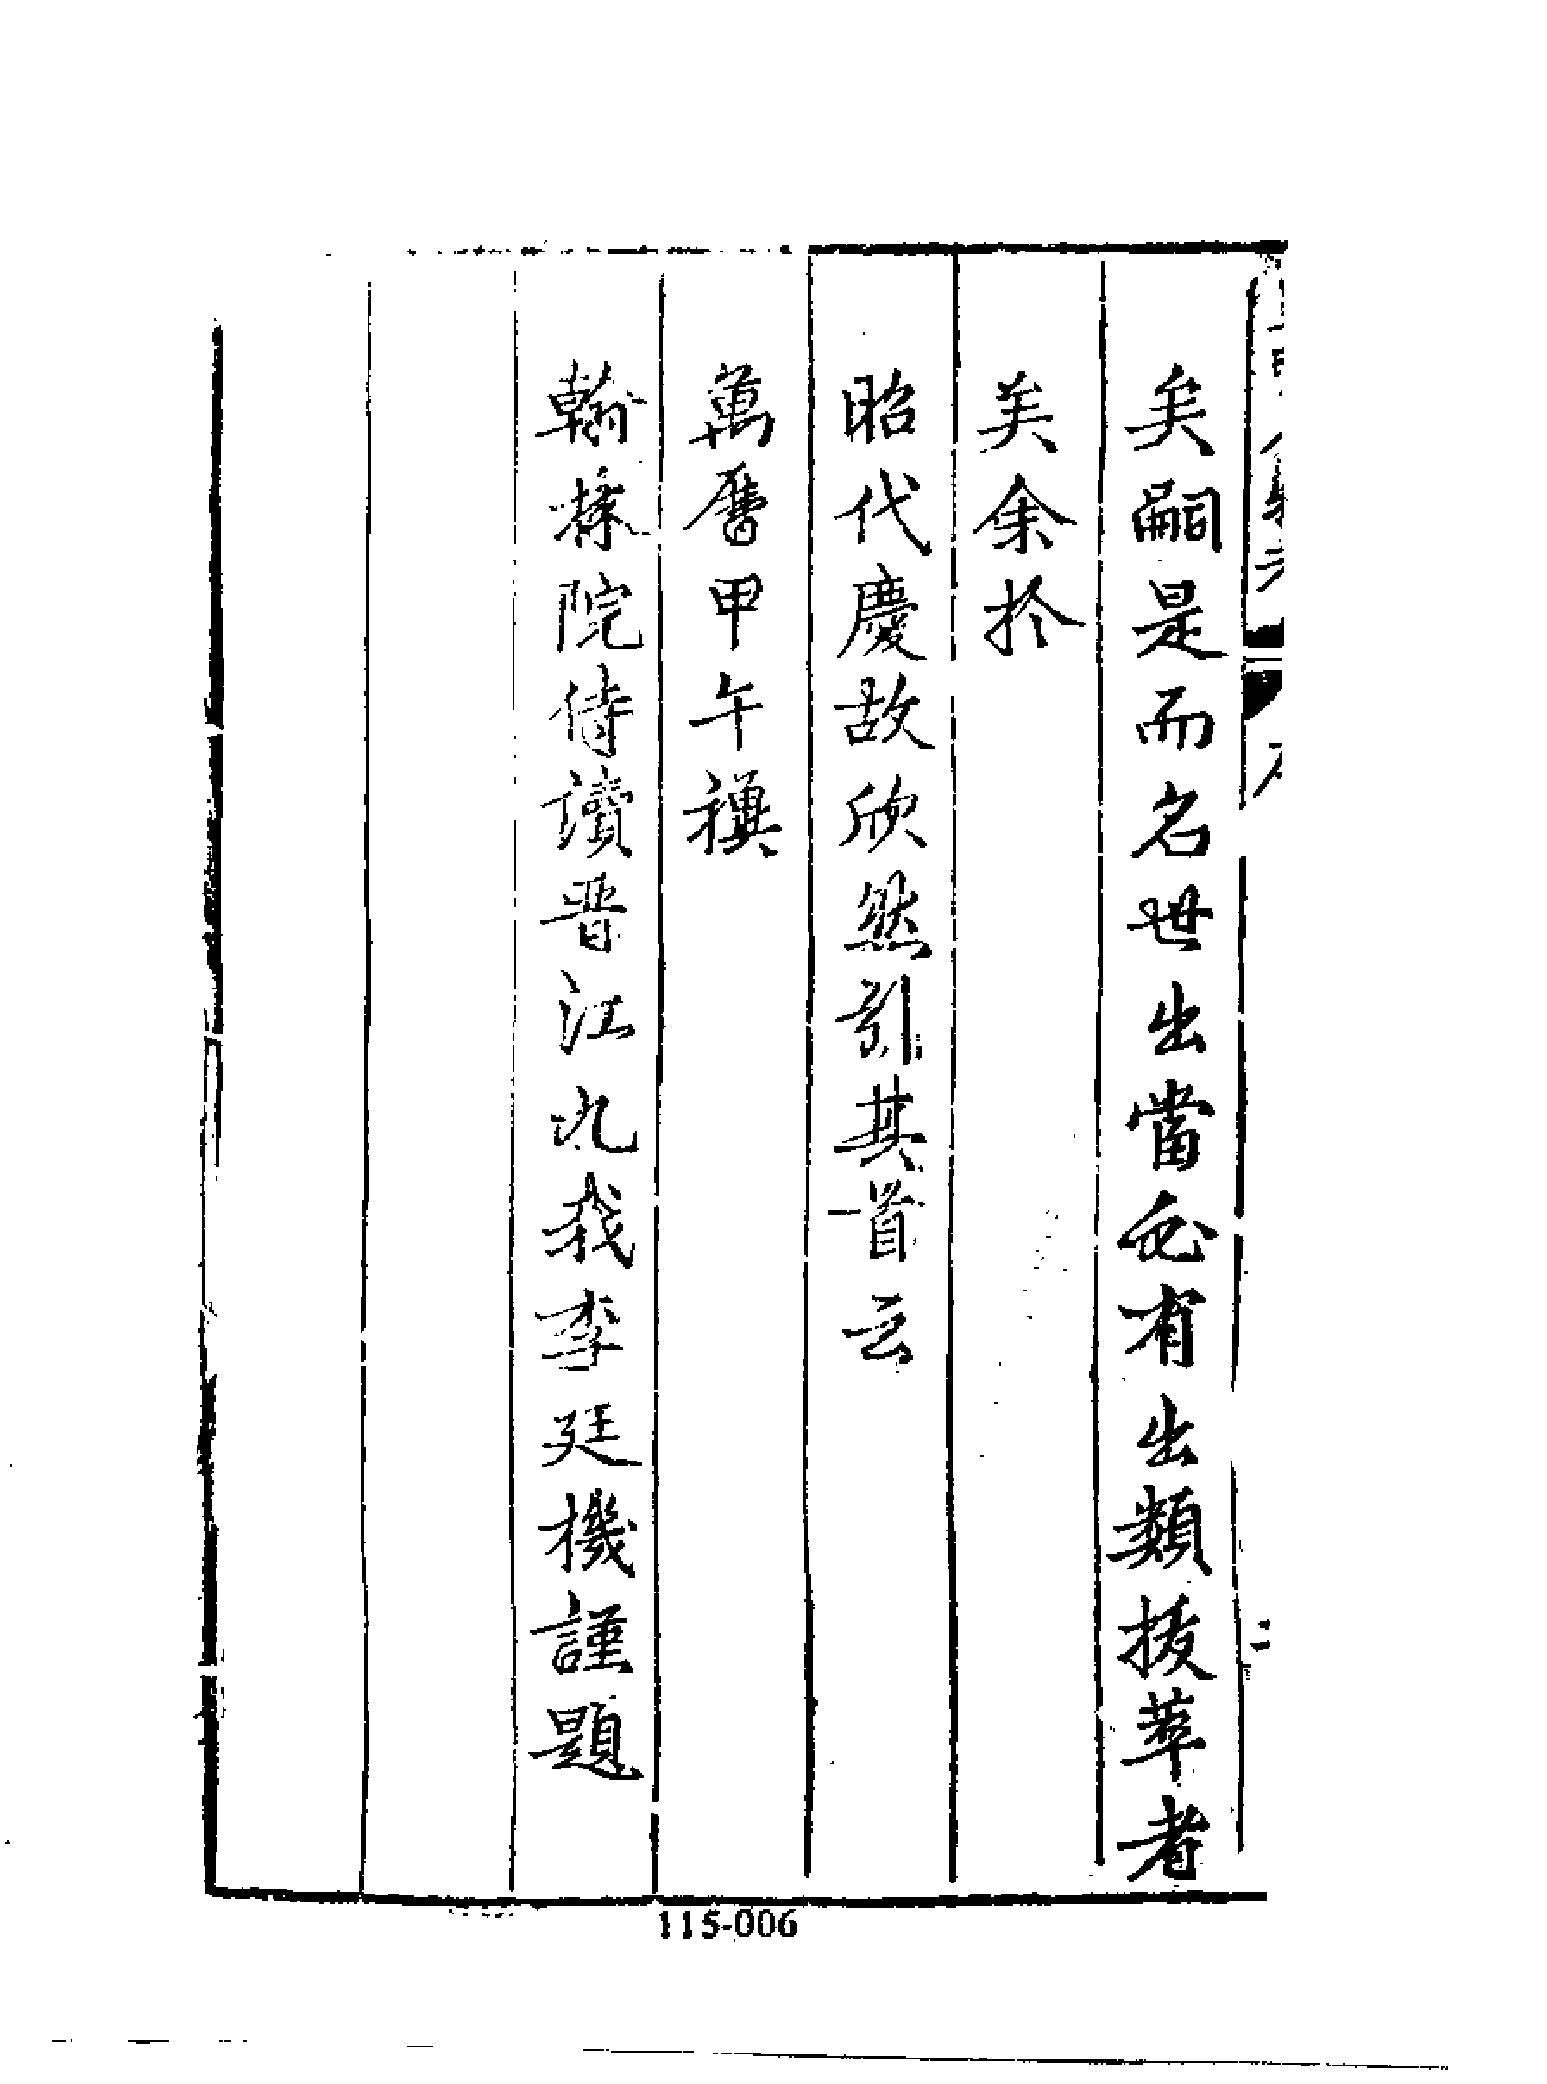 矣嗣是而名世出當必有出類拔萃者
矣余於
昭代慶故欣然引其首云
萬曆甲午禩
翰林院侍讀晉江九我李廷機謹題
二
115-006